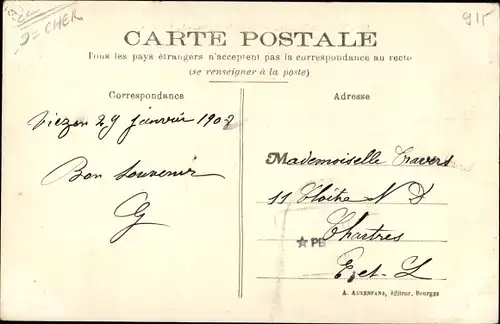 CHER
915
CARTE POSTALE
Tous les pays étrangers n'acceptent pas la correspondance au recto
(se renseigner à la poste)
Correspondance
Adresse
29 janvier 1908
Bon souvenir
G
Mademoiselle Travers
11 Cloître N D
★ PB
Chartres
E. et. L
A. AUXENFANS, éditeur, Bourges